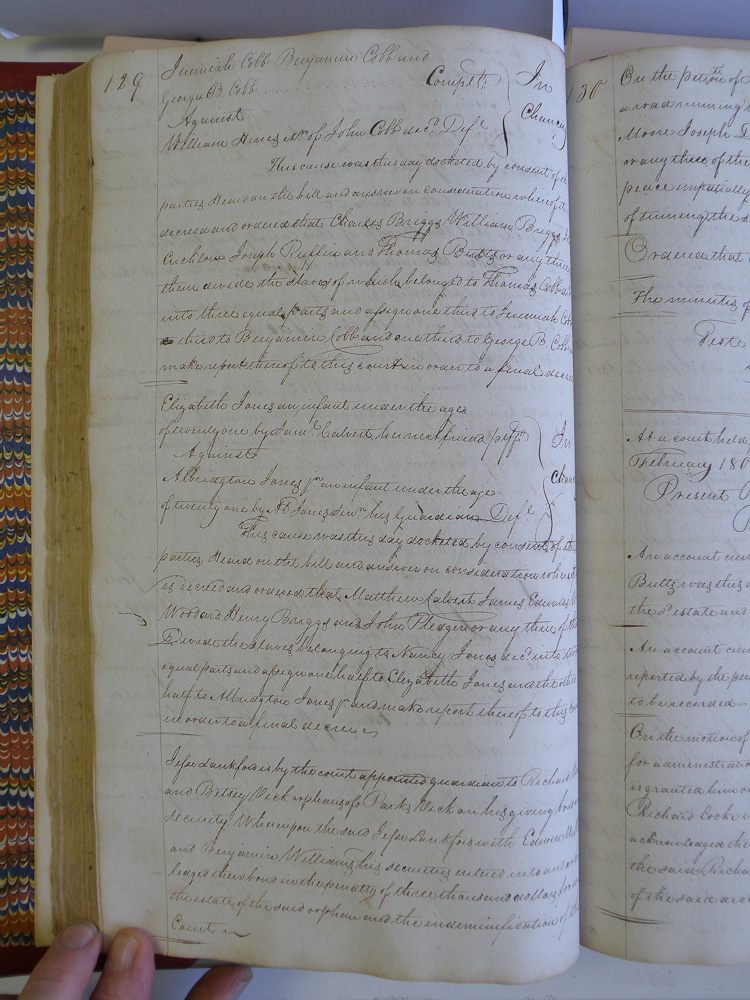 129
Jeremiah Cobb Benjamin Cobb and
George B Cobb Complts
Against
William Hines Ar of John Cobb decd Deft
In
Chancy
This cause was this day docketed by consent of the
parties, Heard on the bill and answer on consideration whereof it
decreed and ordered that Charles Briggs William Briggs
Joseph Ruffin and Thomas Butts or any three
them divide the slaves of which belonged to Thomas Cobb
into three equal parts and assign one third to Jeremiah Cobb
third to Benjamin Cobb and one third to George B. Cobb
make report thereof to this court in order to a final decree
Elizabeth Jones an infant under the age
of twenty one by Saml Calvert her next friend plft
Against
Albridgton Jones jr an infant under the age
of twenty one by At Jones Senr his Guardian Deft
In
Chan
This cause was this day docketed by consent of the
parties, Heard on the bill and answer on consideration whereof
es decreed and ordered that Matthew Calvert James Edwards
Woodard Henry Briggs and John Pledger or any three of
Divide the slaves belonging to Nancy Jones decd into two
equal parts and assign one half to Elizabeth Jones and the other
half to Albridgton Jones jr and make report thereof to this
in order to a final decree
Jesse Lankford is by the court appointed guardian to Richard
and Betsey Vick orphans of Parks Vick on his giving bond
security Whereupon the said Jesse Lankford with Edwin
and Benjamin Williams his securities entered into and
ledged their bond in the penalty of three thousand dollars for
the estate of the said orphan and the indemnification of the
Court
130
On the petitn of
a road running
Moore Joseph
or any three of the
peace impartially
of turning the
Ordered that
The minutes of
Teste
At a court held
February 180
Present
An account curr
Butts was this
the sd estate and
An account curr
reported by the per
to be recorded
On the motion of
for administratio
is granted him o
Richard Cocke
acknowledged the
the said Richa
of the said dec